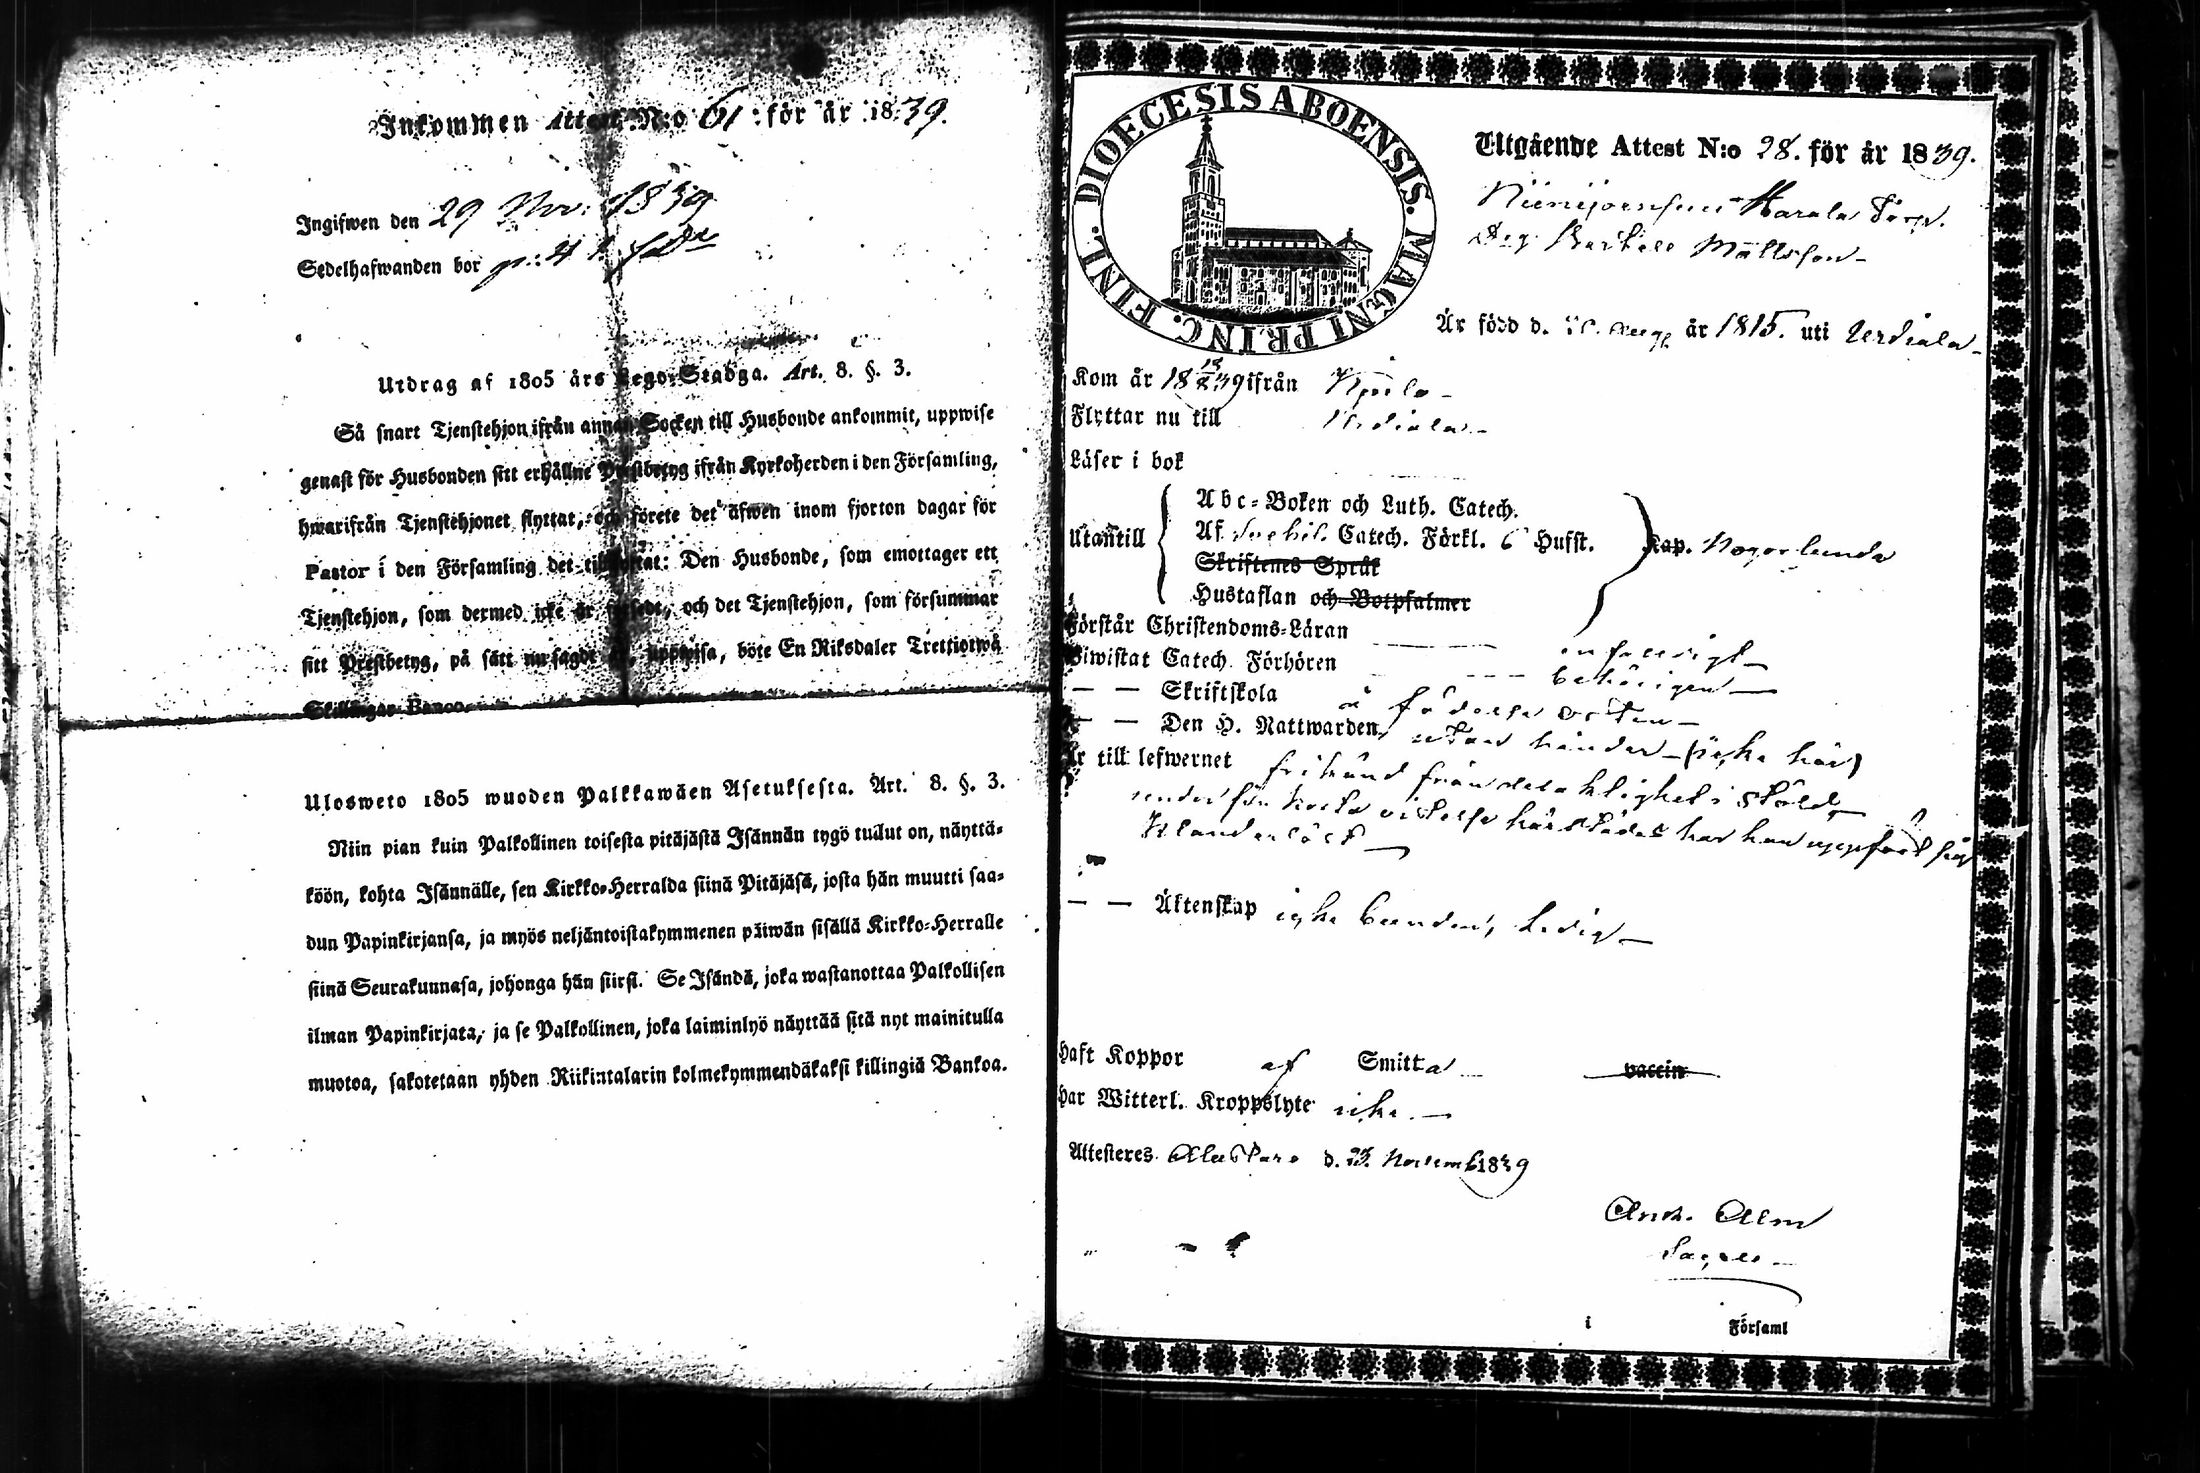 Inkommen Attest N:o 61 för år 1839.
Ingifwen den 29 Nov. 1839
Sedelhafwanden bor
Utdrag af 1805 års Lego-Stadga. Art. 8. §. 3.
Så snart Tjenstehjon ifrån annan Socken till Husbonde ankommit, uppwise
genast för Husbonden sitt erhållne Prestbetyg ifrån Kyrkoherden i den Församling,
hwarifrån Tjenstehjonet flyttat, och förete det äfwen inom fjorton dagar för
Pastor i den Församling det tillflyttat: Den Husbonde, som emottager ett
Tjenstehjon, som dermed icke är försedt, och det Tjenstehjon, som försummar
sitt Prestbetyg, på sätt nu sagdt är, uppwisa, böte En Riksdaler Trettiotwå
Skillingar Banco.
Ulosweto 1805 wuoden Palkkawäen Asetuksesta. Art. 8. §. 3.
Niin pian kuin Palkollinen toisesta pitäjästä Isännän tygö tullut on, näyttä-
köön, kohta Isännälle, sen Kirkko-Herralda siinä Pitäjäsä, josta hän muutti saa-
dun Papinkirjansa, ja myös neljäntoistakymmenen päiwän sisällä Kirkko-Herralle
siinä Seurakunnasa, johonga hän siirsi. Se Isändä, joka wastanottaa Palkollisen
ilman Papinkirjata, ja se Palkollinen, joka laiminlyö näyttää sitä nyt mainitulla
muotoa, sakotetaan yhden Riikintalarin kolmekymmendäkaksi killingiä Bankoa.
DIOECESIS ABOENSIS. MAGNI PRINC. FINL.
Utgående Attest N:o 28. för år 1839.
Niinijoensuu Harala Torp.
Drg Mattsson
Är född d. Aug år 1815. uti Urdiala
Kom år 1839 ifrån
Flyttar nu till Urdiala
Läser i bok
Abc-Boken och Luth. Catech.
Utantill Af Svebil. Catech. Förkl. 6 Hufst. Kap. Någorlunda
Skriftenes Språk
Hustaflan och Botpsalmer
Förstår Christendoms-Läran enfaldigt
Biwistat Catech. Förhören behörigen
— — Skriftskola å födelse orten
— — Den H. Nattwarden, utan hinder (icke här)
Är till lefwernet frikänd från delaktighet i stöld,
under sin korta vistelse härstädes har han uppfört sig
klanderlöst
— — Äktenskap icke bunden, ledig
Haft Koppor af Smitta vaccin
Har Witterl. Kroppslyte icke.
Attesteres Alastaro d. 25. Novemb 1839
And. Alm
i Församl